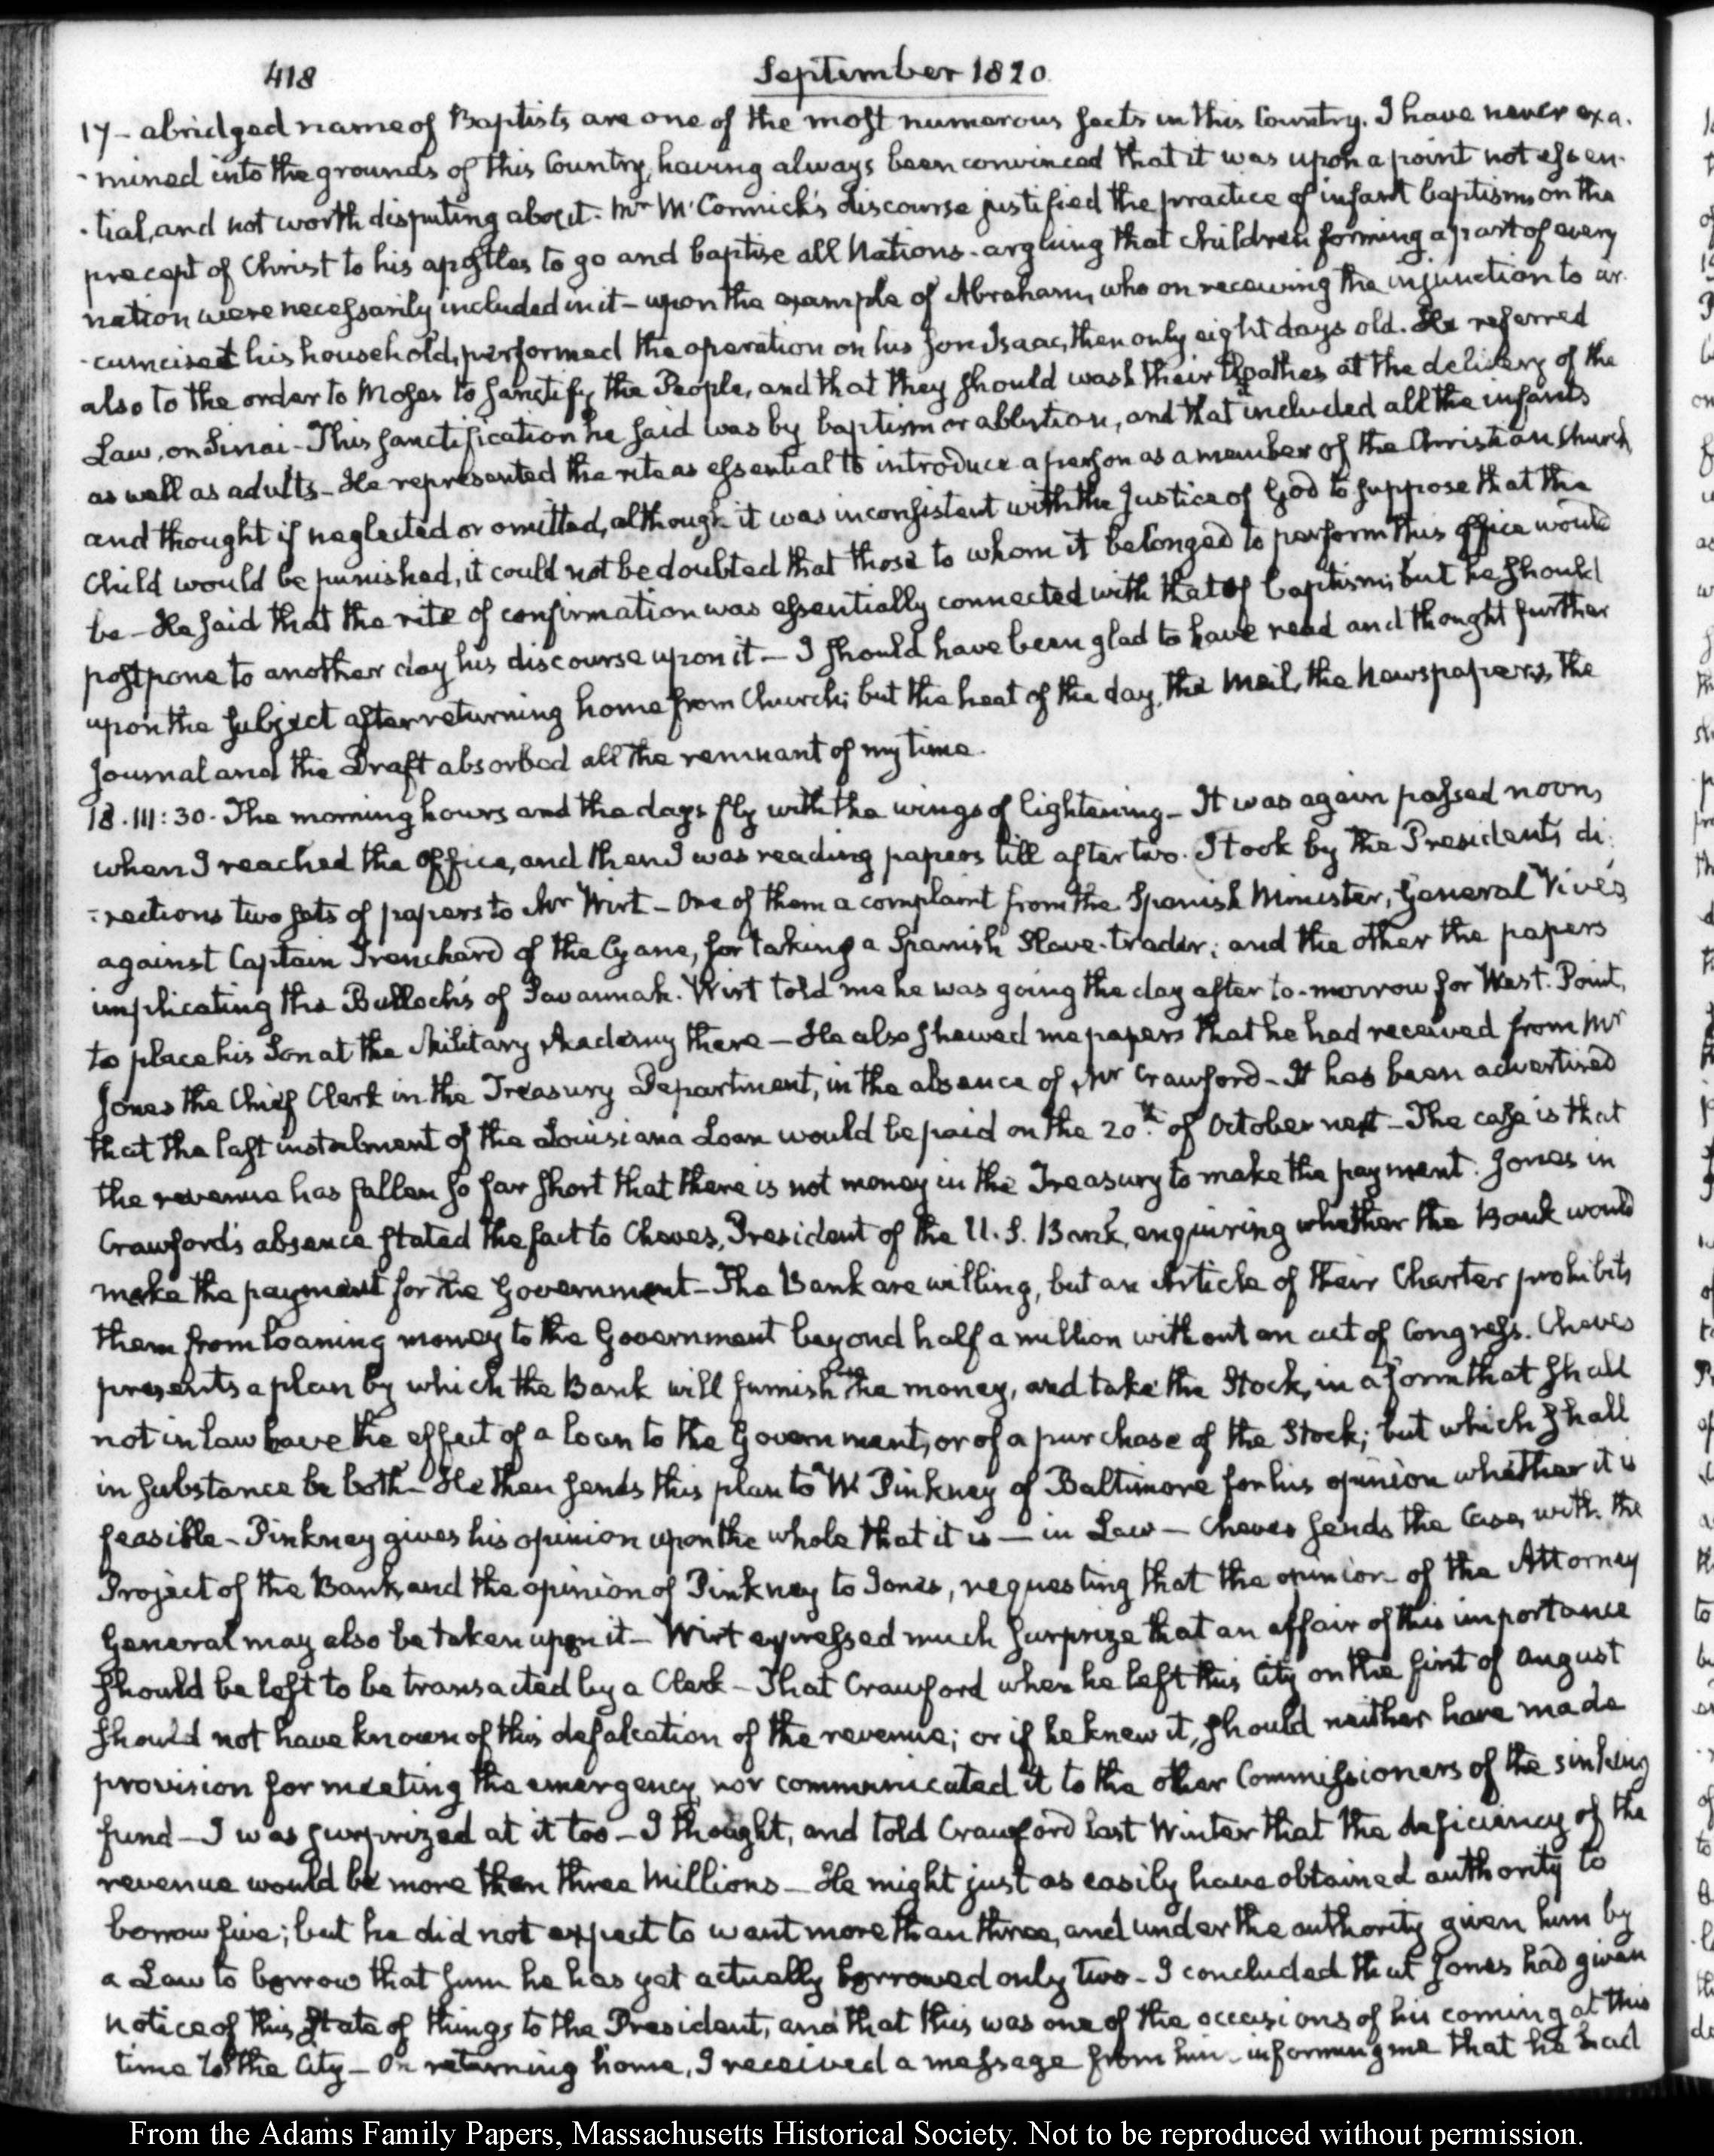 418
September 1820
17 - abridged name of Baptists are one of the most numerous sects in this Country. I have never exa-
-mined into the grounds of this Country, having always been convinced that it was upon a point not essen-
-tial, and not worth disputing about. Mr McCormick's discourse justified the practice of infant baptism on the
precept of Christ to his apostles to go and baptise all Nations - arguing that children forming a part of every
nation were necessarily included in it - upon the example of Abraham, who on receiving the injunction to cir-
-cumcised his household, performed the operation on his son Isaac, then only eight days old. He referred
also to the order to Moses to sanctify the People, and that they should wash their Cloathes at the delivery of the
Law, on Sinai - This sanctification he said was by baptism or ablution, and that it included all the infants
as well as adults - He represented the rite as essential to introduce a person as a member of the Christian Church,
and thought if neglected or omitted, although it was inconsistent with the Justice of God to suppose that the
Child would be punished, it could not be doubted that those to whom it belonged to perform this office would
be - He said that the rite of confirmation was essentially connected with that of baptism; but he should
postpone to another day his discourse upon it - I should have been glad to have read and thought further
upon the subject after returning home from Church; but the heat of the day, the Mail, the Newspapers, the
Journal and the Draft absorbed all the remnant of my time.
18. III:30. The morning hours and the days fly with the wings of lightening - It was again passed noon,
when I reached the Office, and then I was reading papers till after two. I took by the President's di-
-rections two sets of papers to Mr Wirt - One of them a complaint from the Spanish Minister, General Vivés
against Captain Trenchard of the Cyane, for taking a Spanish Slave-trader; and the other the papers
implicating the Bulloch's of Savannah. Wirt told me he was going the day after to-morrow for West-Point,
to place his Son at the Military Academy there - He also shewed me papers that he had received from Mr
Jones the Chief Clerk in the Treasury Department, in the absence of Mr Crawford - It has been advertised
that the last instalment of the Louisiana Loan would be paid on the 20th. of October next - The case is that
the revenue has fallen so far short that there is not money in the Treasury to make the payment. Jones in
Crawford's absence stated the fact to Cheves, President of the U.S. Bank, enquiring whether the Bank would
make the payment for the Government - The Bank are willing, but an Article of their Charter prohibits
them from loaning money to the Government beyond half a million without an act of Congress. Cheves
presents a plan by which the Bank will furnish the money, and take the Stock, in a form that shall
not in law have the effect of a loan to the Government, or of a purchase of the Stock; but which shall
in substance be both - He then sends this plan to W. Pinkney of Baltimore for his opinion whether it is
feasible - Pinkney gives his opinion upon the whole that it is - in Law - Cheves sends the Case, with the
Project of the Bank, and the opinion of Pinkney to Jones, requesting that the opinion of the Attorney
General may also be taken upon it - Wirt expressed much surprize that an affair of this importance
should be left to be transacted by a Clerk - That Crawford when he left this City on the first of August
should not have known of this defalcation of the revenue; or if he knew it, should neither have made
provision for meeting the emergency, nor communicated it to the other Commissioners of the sinking
fund - I was surprized at it too - I thought, and told Crawford last Winter that the deficiency of the
revenue would be more than three Millions - He might just as easily have obtained authority to
borrow five; but he did not expect to want more than three, and under the authority given him by
a Law to borrow that sum he has yet actually borrowed only two - I concluded that Jones had given
notice of this State of things to the President, and that this was one of the occasions of his coming at this
time to the City - On returning home, I received a message from him informing me that he had
From the Adams Family Papers, Massachusetts Historical Society. Not to be reproduced without permission.